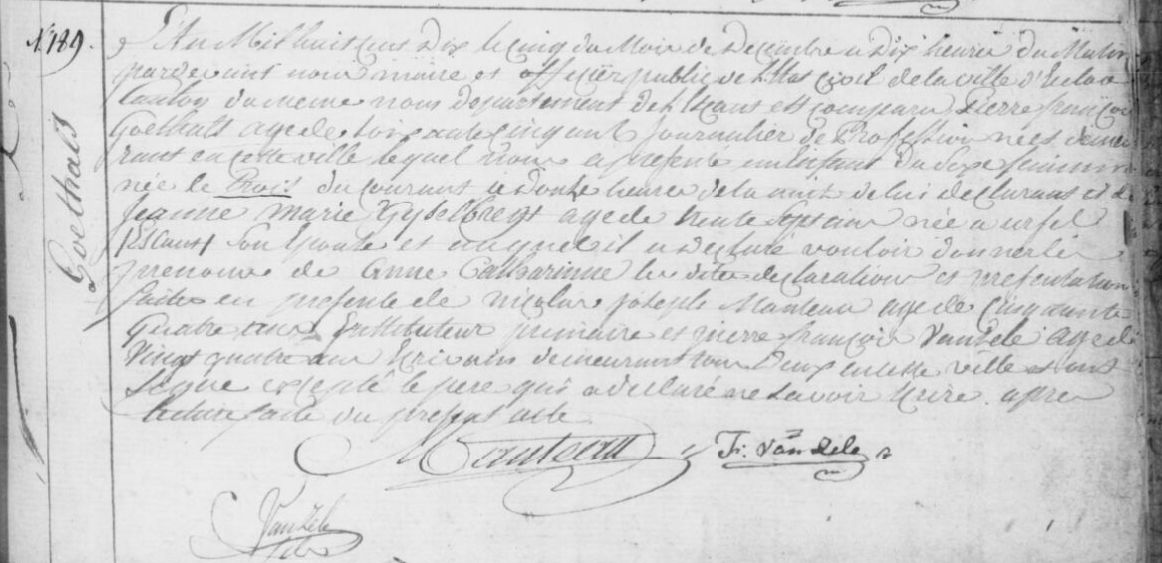 N.° 189.
Goethals
L'An Mil huit cens Dix le cinq du Mois de Decembre a Dix heures du Matin
pardevant nous maire et officier public de l'Etat civil de la ville d'Eecloo
Canton du meme nous departement de l'Escaut est comparu Pierre françois
Goethals agé de soixante cinq ans Journalier de Profession née et demeu
rant en cette ville lequel nous a presenté un Enfant du Sexe feminin
née le Trois du Courant a Douze heures de la nuit de lui declarant et de
Jeanne Marie Gyselbregt agée de trente Sept ans née a ursel
(Escaut) Son Epouse et auquel il a declaré vouloir donner les
prenoms de Anne Catharinne les dites declaration et presentation
faites en presente de nicolas joseph Manteau agé de Cinquante
Quatre ans Instituteur primaire et pierre françois VanZele agé de
Vingt quatre ans Ecrivain demeurant tous Deux en cette ville et ont
Signé excepté le pere qui a declaré ne savoir Ecrire. apres
lecture faite du present acte
Manteau F: Van Zele
VanZele